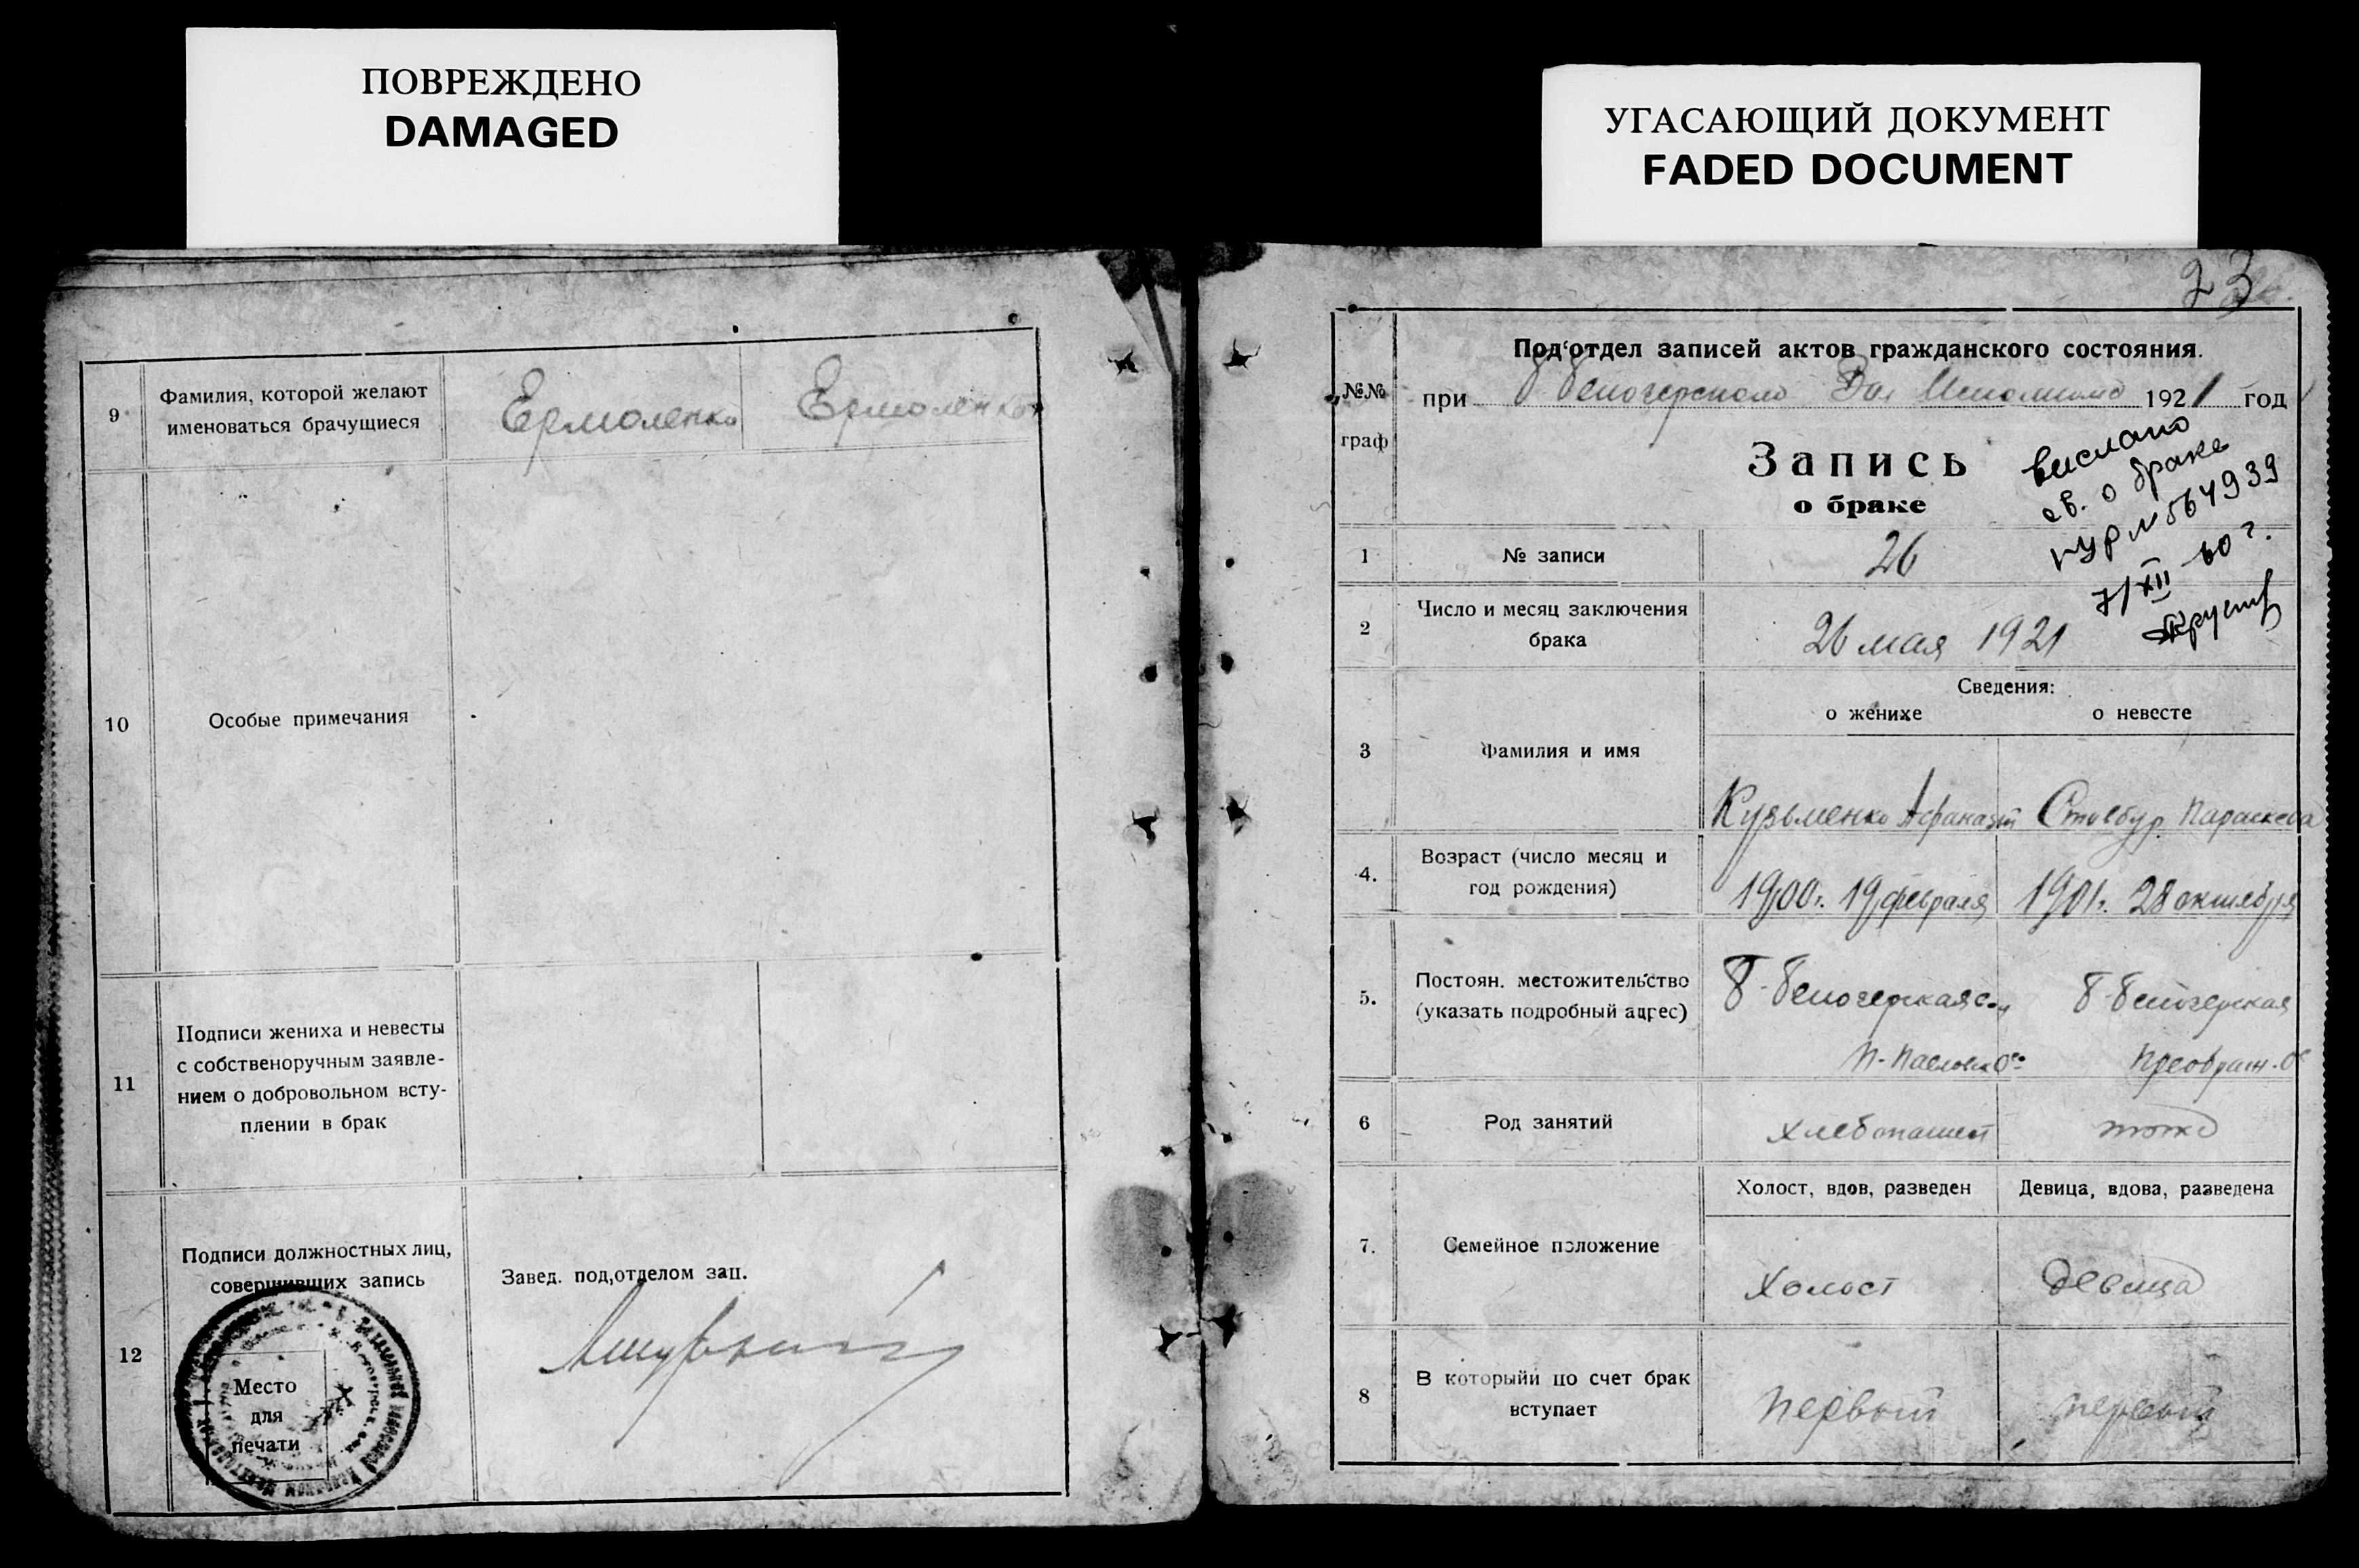 ПОВРЕЖДЕНО
DAMAGED
9
Фамилия, которой желают
именоваться брачущиеся
Ермоленко
Ермоленко
10
Особые примечания
11
Подписи жениха и невесты
с собственоручным заявле-
нием о добровольном всту-
плении в брак
12
Подписи должностных лиц,
совершивших запись
Завед. под,отделом зап.
Место
для
печати
УГАСАЮЩИЙ ДОКУМЕНТ
FADED DOCUMENT
23
№№
граф
Под‘отдел записей актов гражданского состояния.
при Исполкома 1921 год
Запись
о браке
выслано
св. о браке
№ 564939
7/XII 60 г.
1
№ записи
26
2
Число и месяц заключения
брака
26 мая 1921
Сведения:
о женихе
о невесте
3
Фамилия и имя
Кузьменко Афанасий
Столбур Параскева
4.
Возраст (число месяц и
год рождения)
1900 г. 19 февраля
1901 г. 28 октября
5.
Постоян. местожительство
(указать подробный адрес)
Б-Белозерская
П-Павловск
Б-Белозерская
Преображ.
6
Род занятий
хлебопашец
тоже
7.
Семейное положение
Холост, вдов, разведен
Девица, вдова, разведена
Холост
Девица
8
В которыйи по счет брак
вступает
первый
первый